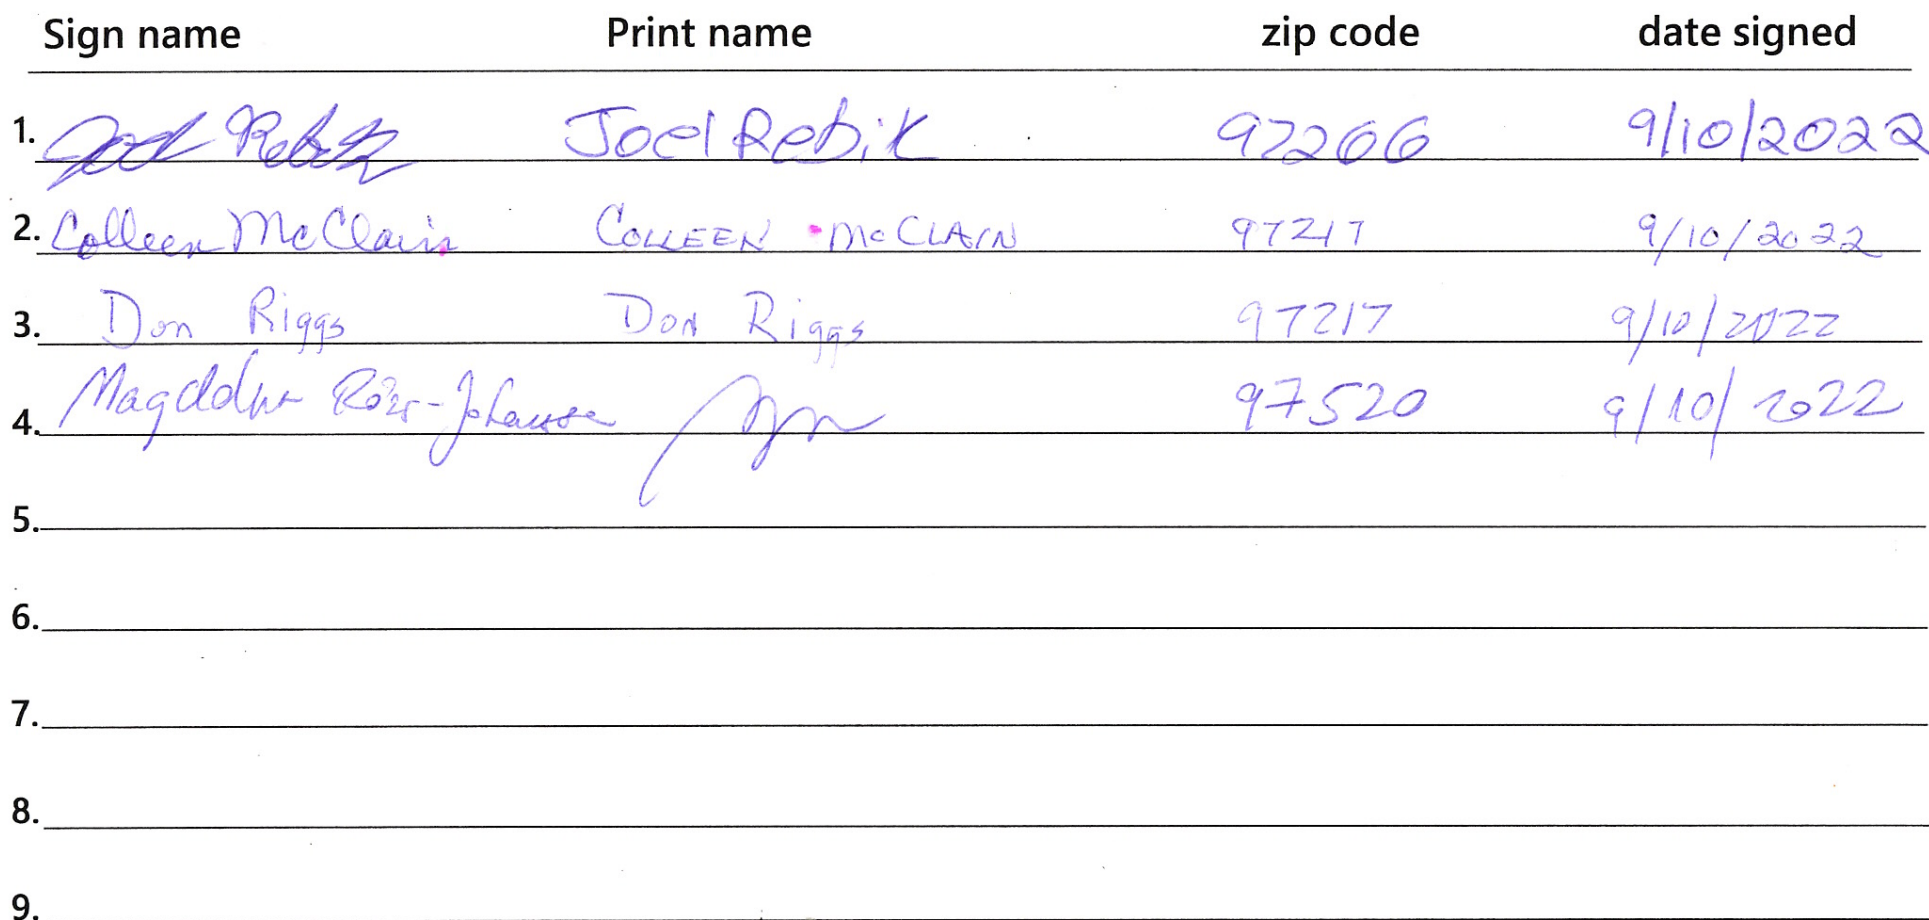 Sign name Print name zip code date signed
1. Joel Rebik Joel Rebik 97266 9/10/2022
2. Colleen McClain COLLEEN McCLAIN 97217 9/10/2022
3. Don Riggs Don Riggs 97217 9/10/2022
4. 97520 9/10/2022
5.
6.
7.
8.
9.